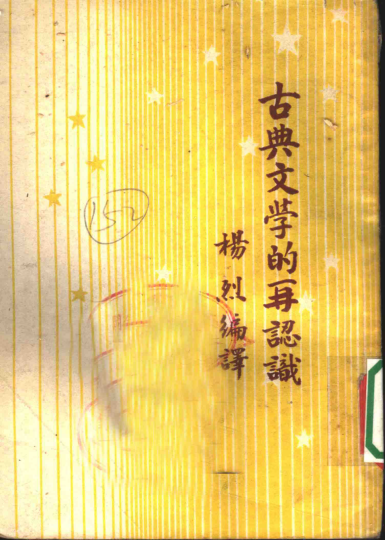 古典文学的再認識
楊烈編譯
152